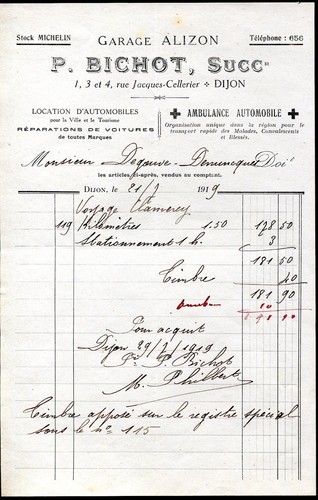 Stock MICHELIN
GARAGE ALIZON
Téléphone : 656
P. BICHOT, Succr
1, 3 et 4, rue Jacques-Cellerier DIJON
LOCATION D'AUTOMOBILES
pour la Ville et le Tourisme
RÉPARATIONS DE VOITURES
de toutes Marques
AMBULANCE AUTOMOBILE
Organisation unique dans la région pour le
transport rapide des Malades, Convalescents
et Blessés.
Monsieur Degouve-Denuncques Doit
les articles ci-après, vendus au comptant.
DIJON, le 21/7 1919
Voyage Clamerey
119 Kilomètres 1.50 178 50
Stationnement 1 h. 3
181 50
Timbre 40
181 90
10
191 90
Pour acquit
Dijon 29/7/1919
Pr P. Bichot
M. Philbert
Timbre apposé sur le registre spécial
sous le no 115